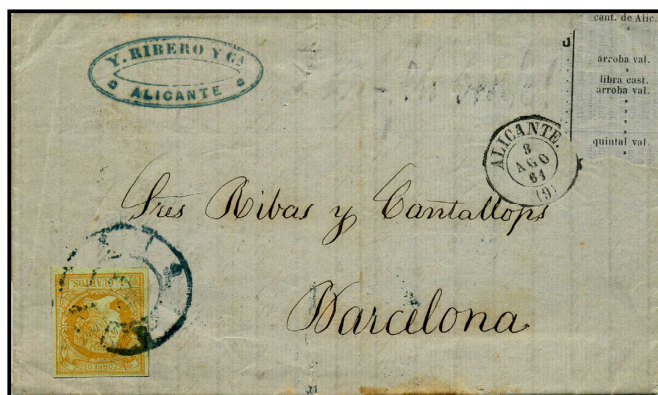 Y. RIBERO Y Cª
ALICANTE
cant. de Alic.
arroba val.
libra cast.
arroba val.
quintal val.
ALICANTE.
8
AGO
61
(9)
Sres Ribas y Cantallops
Barcelona
4 CUARTOS